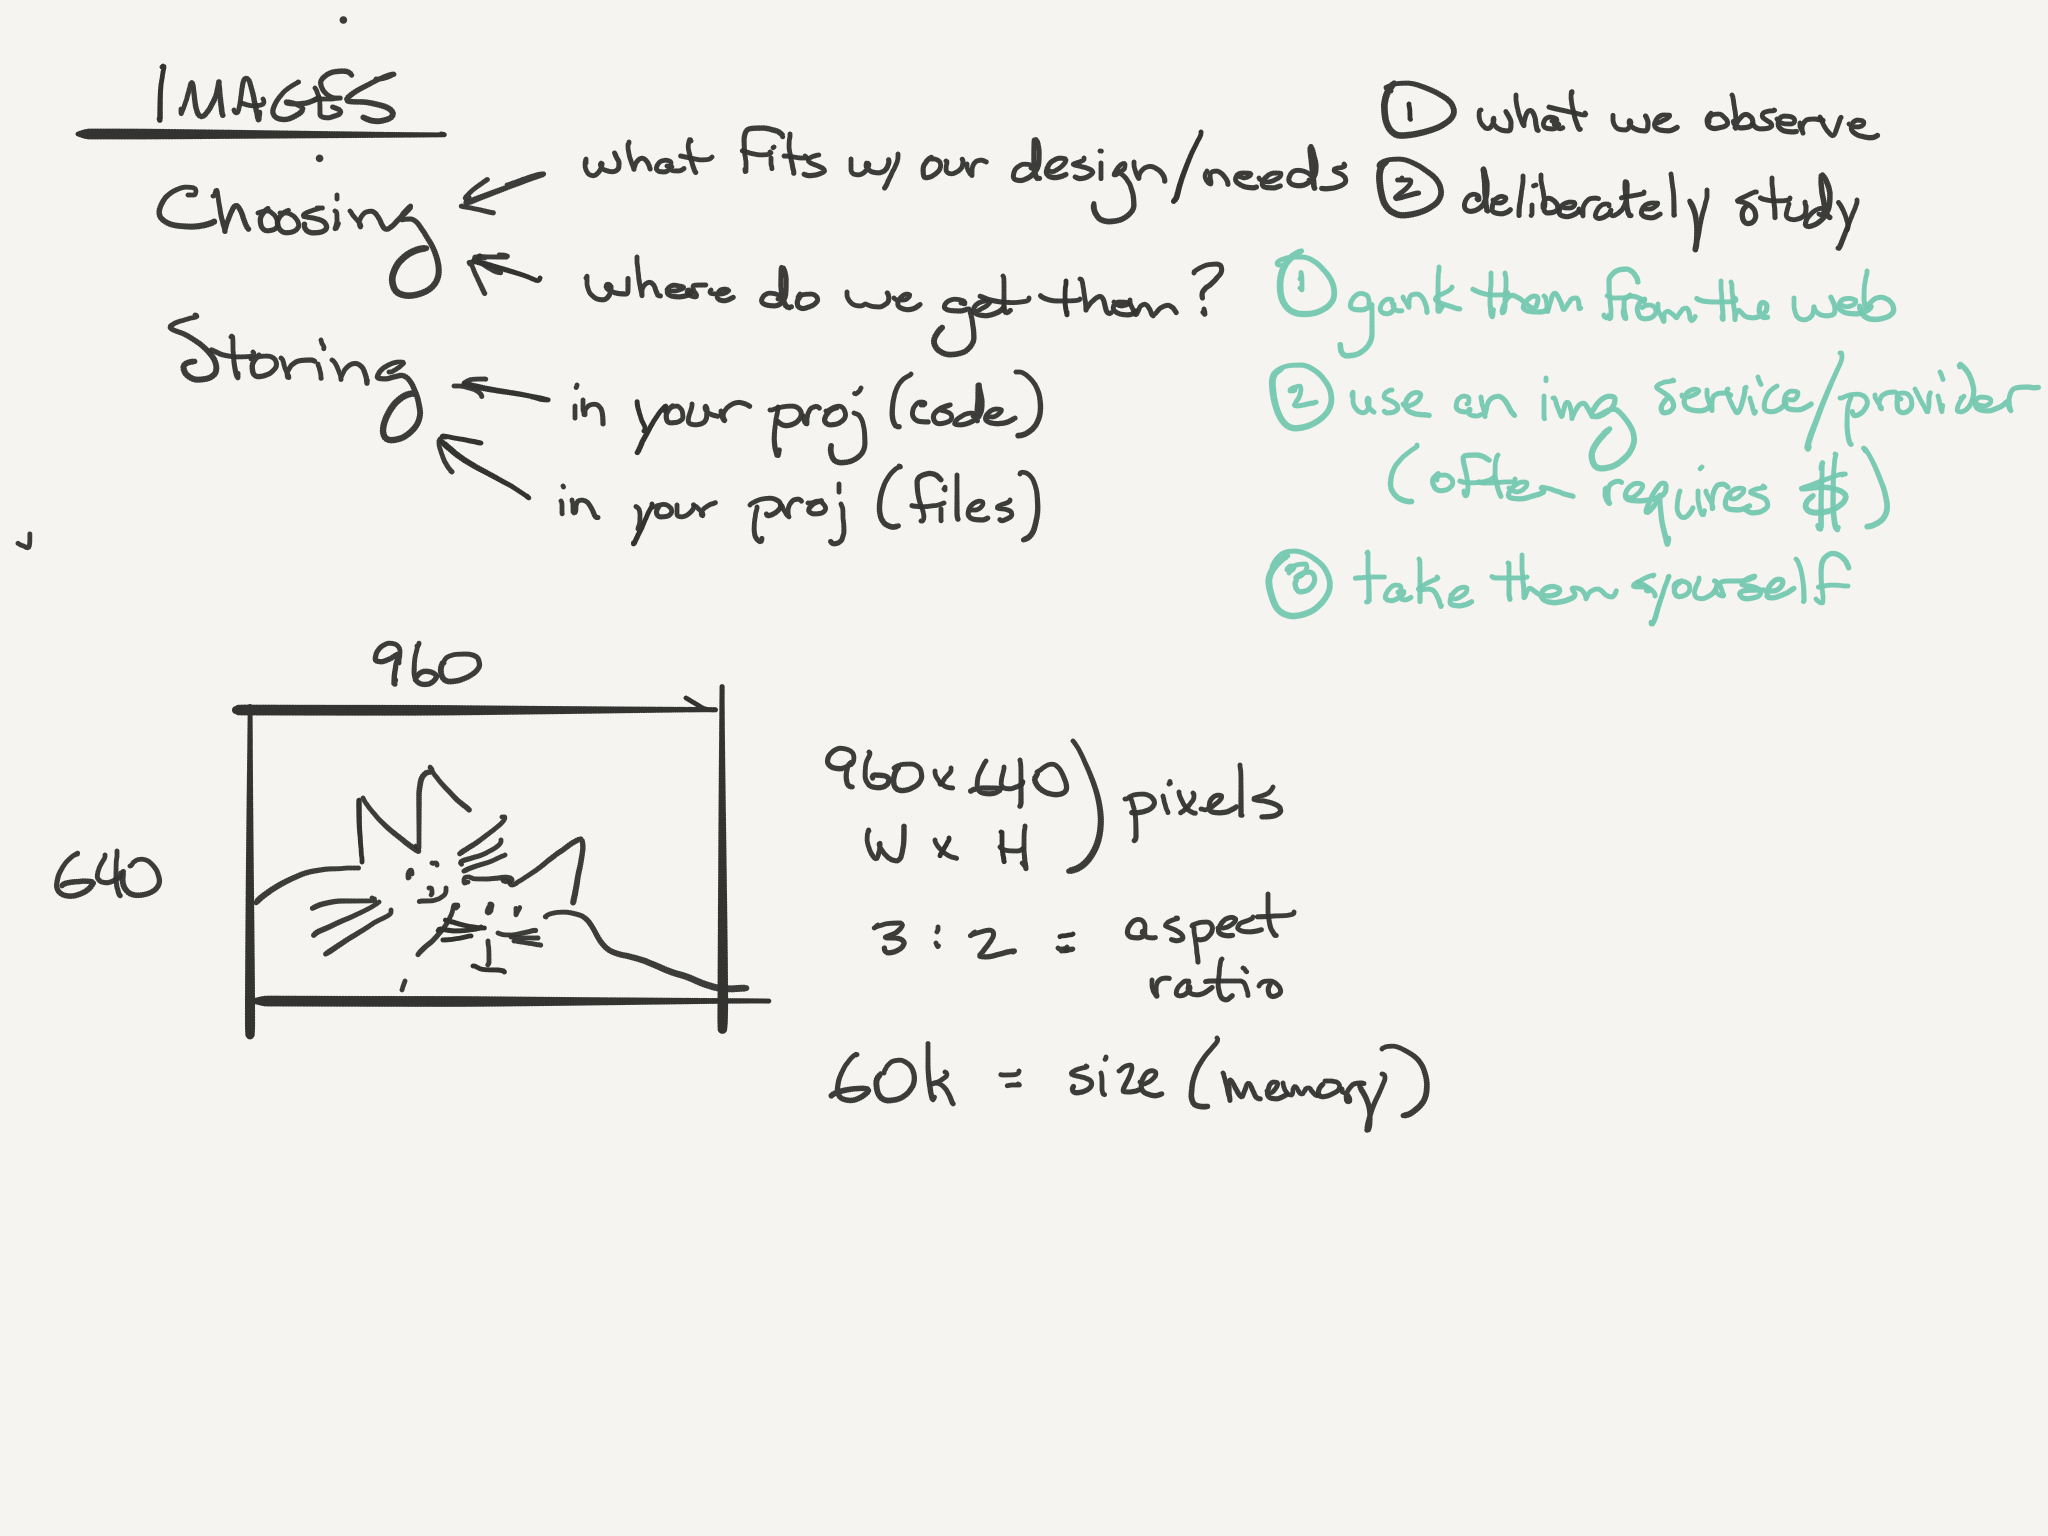 IMAGES
Choosing
what fits w/ our design/needs
① what we observe
② deliberately study
where do we get them?
① gank them from the web
② use an img service/provider
(often requires $)
③ take them yourself
Storing
in your proj (code)
in your proj (files)
960
640
960 x 640) pixels
W x H
3 : 2 = aspect
ratio
60k = size (memory)